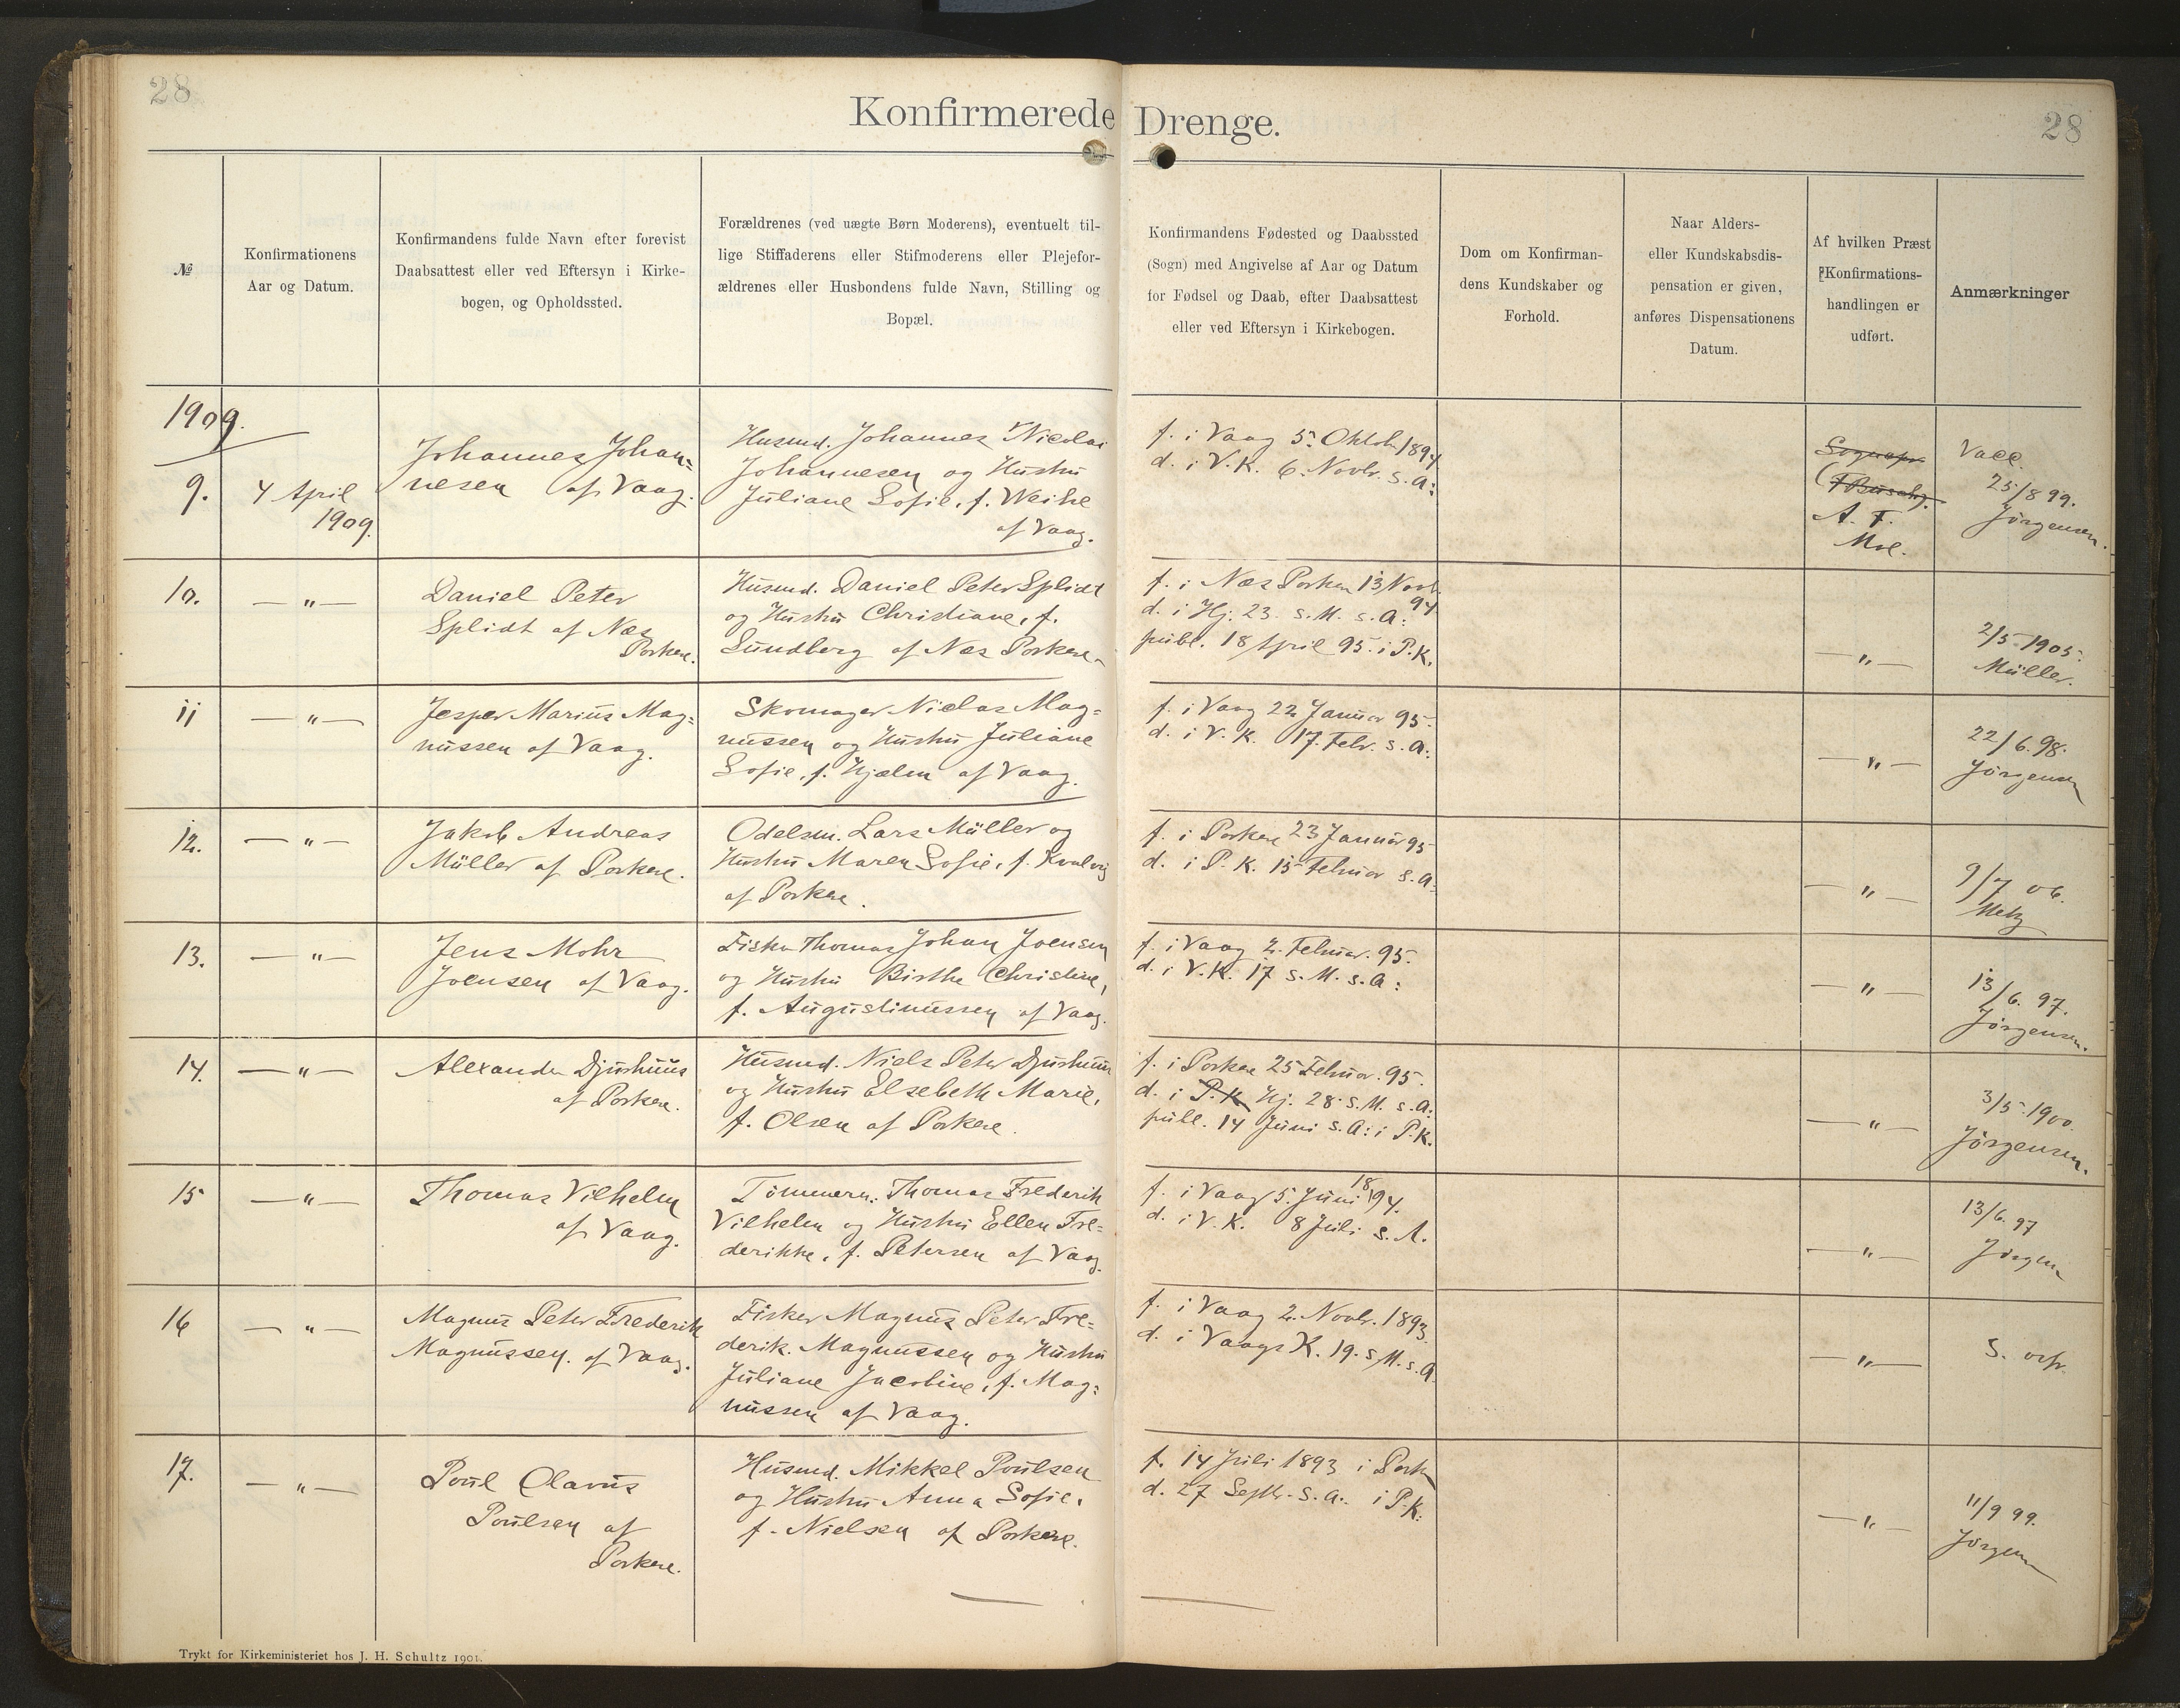 28
Konfirmerede Drenge.
28
№
Konfirmationens
Aar og Datum.
Konfirmandens fulde Navn efter forevist
Daabsattest eller ved Eftersyn i Kirke-
bogen, og Opholdssted.
Forældrenes (ved uægte Børn Moderens), eventuelt til-
lige Stiffaderens eller Stifmoderens eller Plejefor-
ældrenes eller Husbondens fulde Navn, Stilling og
Bopæl.
Konfirmandens Fødested og Daabssted
(Sogn) med Angivelse af Aar og Datum
for Fødsel og Daab, efter Daabsattest
eller ved Eftersyn i Kirkebogen.
Dom om Konfirman-
dens Kundskaber og
Forhold.
Naar Alders-
eller Kundskabsdis-
pensation er given,
anføres Dispensationens
Datum.
Af hvilken Præst
Konfirmations-
handlingen er
udført.
Anmærkninger
1909.
9.
4 April
1909.
Johannes Johan=
nesen af Vaag.
Husmd. Johannes Nicolai
Johannesen og Hustru
Juliane Sofie, f. Weihe
af Vaag.
f. i Vaag 5. Oktob. 1894
d. i V. K. 6. Novbr. s. A:
Sognepr
A. F.
Vacc.
25/8 99.
Jörgensen.
10.
— " —
Daniel Peter
Splidt af Næs
Porkere.
Husmd. Daniel Peter Splidt
og Hustru Christiane, f.
Lundberg af Næs Porkere
f. i Næs Porkere 13 Novb.
94
d. i Hj. 23. s. M. s. A:
publ. 18 April 95. i P. K.
— " —
2/5 1905.
Müller.
11
— " —
Jesper Marius Mag=
nussen af Vaag.
Skomager Niclas Mag=
nussen og Hustru Juliane
Sofie, f. Hjælm af Vaag.
f. i Vaag 22 Januar 95.
d. i V. K. 17. Febr. s. A:
— " —
22/6. 98.
Jörgensen
12.
— " —
Jakob Andreas
Müller af Porkere.
Odelsm. Lars Müller og
Hustru Maren Sofie, f. Kvalvig
af Porkere.
f. i Porkere 23 Januar 95
d. i P. K. 15 Februar s. A:
— " —
9/7 06.
Metz
13.
— " —
Jens Mohr
Joensen af Vaag.
Fisker Thomas Johan Joensen
og Hustru Birthe Christine,
f. Augustinussen af Vaag.
f. i Vaag 2. Februar. 95.
d. i V. K. 17 s. M. s. A:
— " —
13/6. 97.
Jörgensen.
14.
— " —
Alexander Djurhuus
af Porkere.
Husmd. Niels Peter Djurhuus
og Hustru Elsebeth Marie,
f. Olsen af Porkere.
f. i Porkere 25 Februar. 95.
d. i P. K Hj. 28. s. M. s. A:
publ. 14 Juni s. A: i P. K.
— " —
3/5 1900.
Jörgensen.
15
— " —
Thomas Vilhelm
af Vaag.
Tömmerm. Thomas Frederik
Vilhelm og Hustru Ellen Fre=
derikke, f. Petersen af Vaag.
f. i Vaag 5. Juni 1894.
d. i V. K. 8 Juli s. A.
— " —
13/6. 97
Jörgen
16
— " —
Magnus Peter Frederik
Magnussen. af Vaag.
Fisker Magnus Peter Fre=
derik. Magnussen og Hustru
Juliane Jacobine, f. Mag=
nussen af Vaag.
f. i Vaag 2. Novbr. 1893.
d. i Vaags K. 19. s. M. s. A
— " —
17.
— " —
Poul Olavus
Poulsen af
Porkere.
Husmd. Mikkel Poulsen
og Hustru Anna Sofie,
f. Nielsen af Porkere.
f. 14 Juli 1893 i Pork
d. 27 Septbr. s. A. i P. K.
— " —
11/9 99.
Jörgen
Trykt for Kirkeministeriet hos J. H. Schultz 1901.